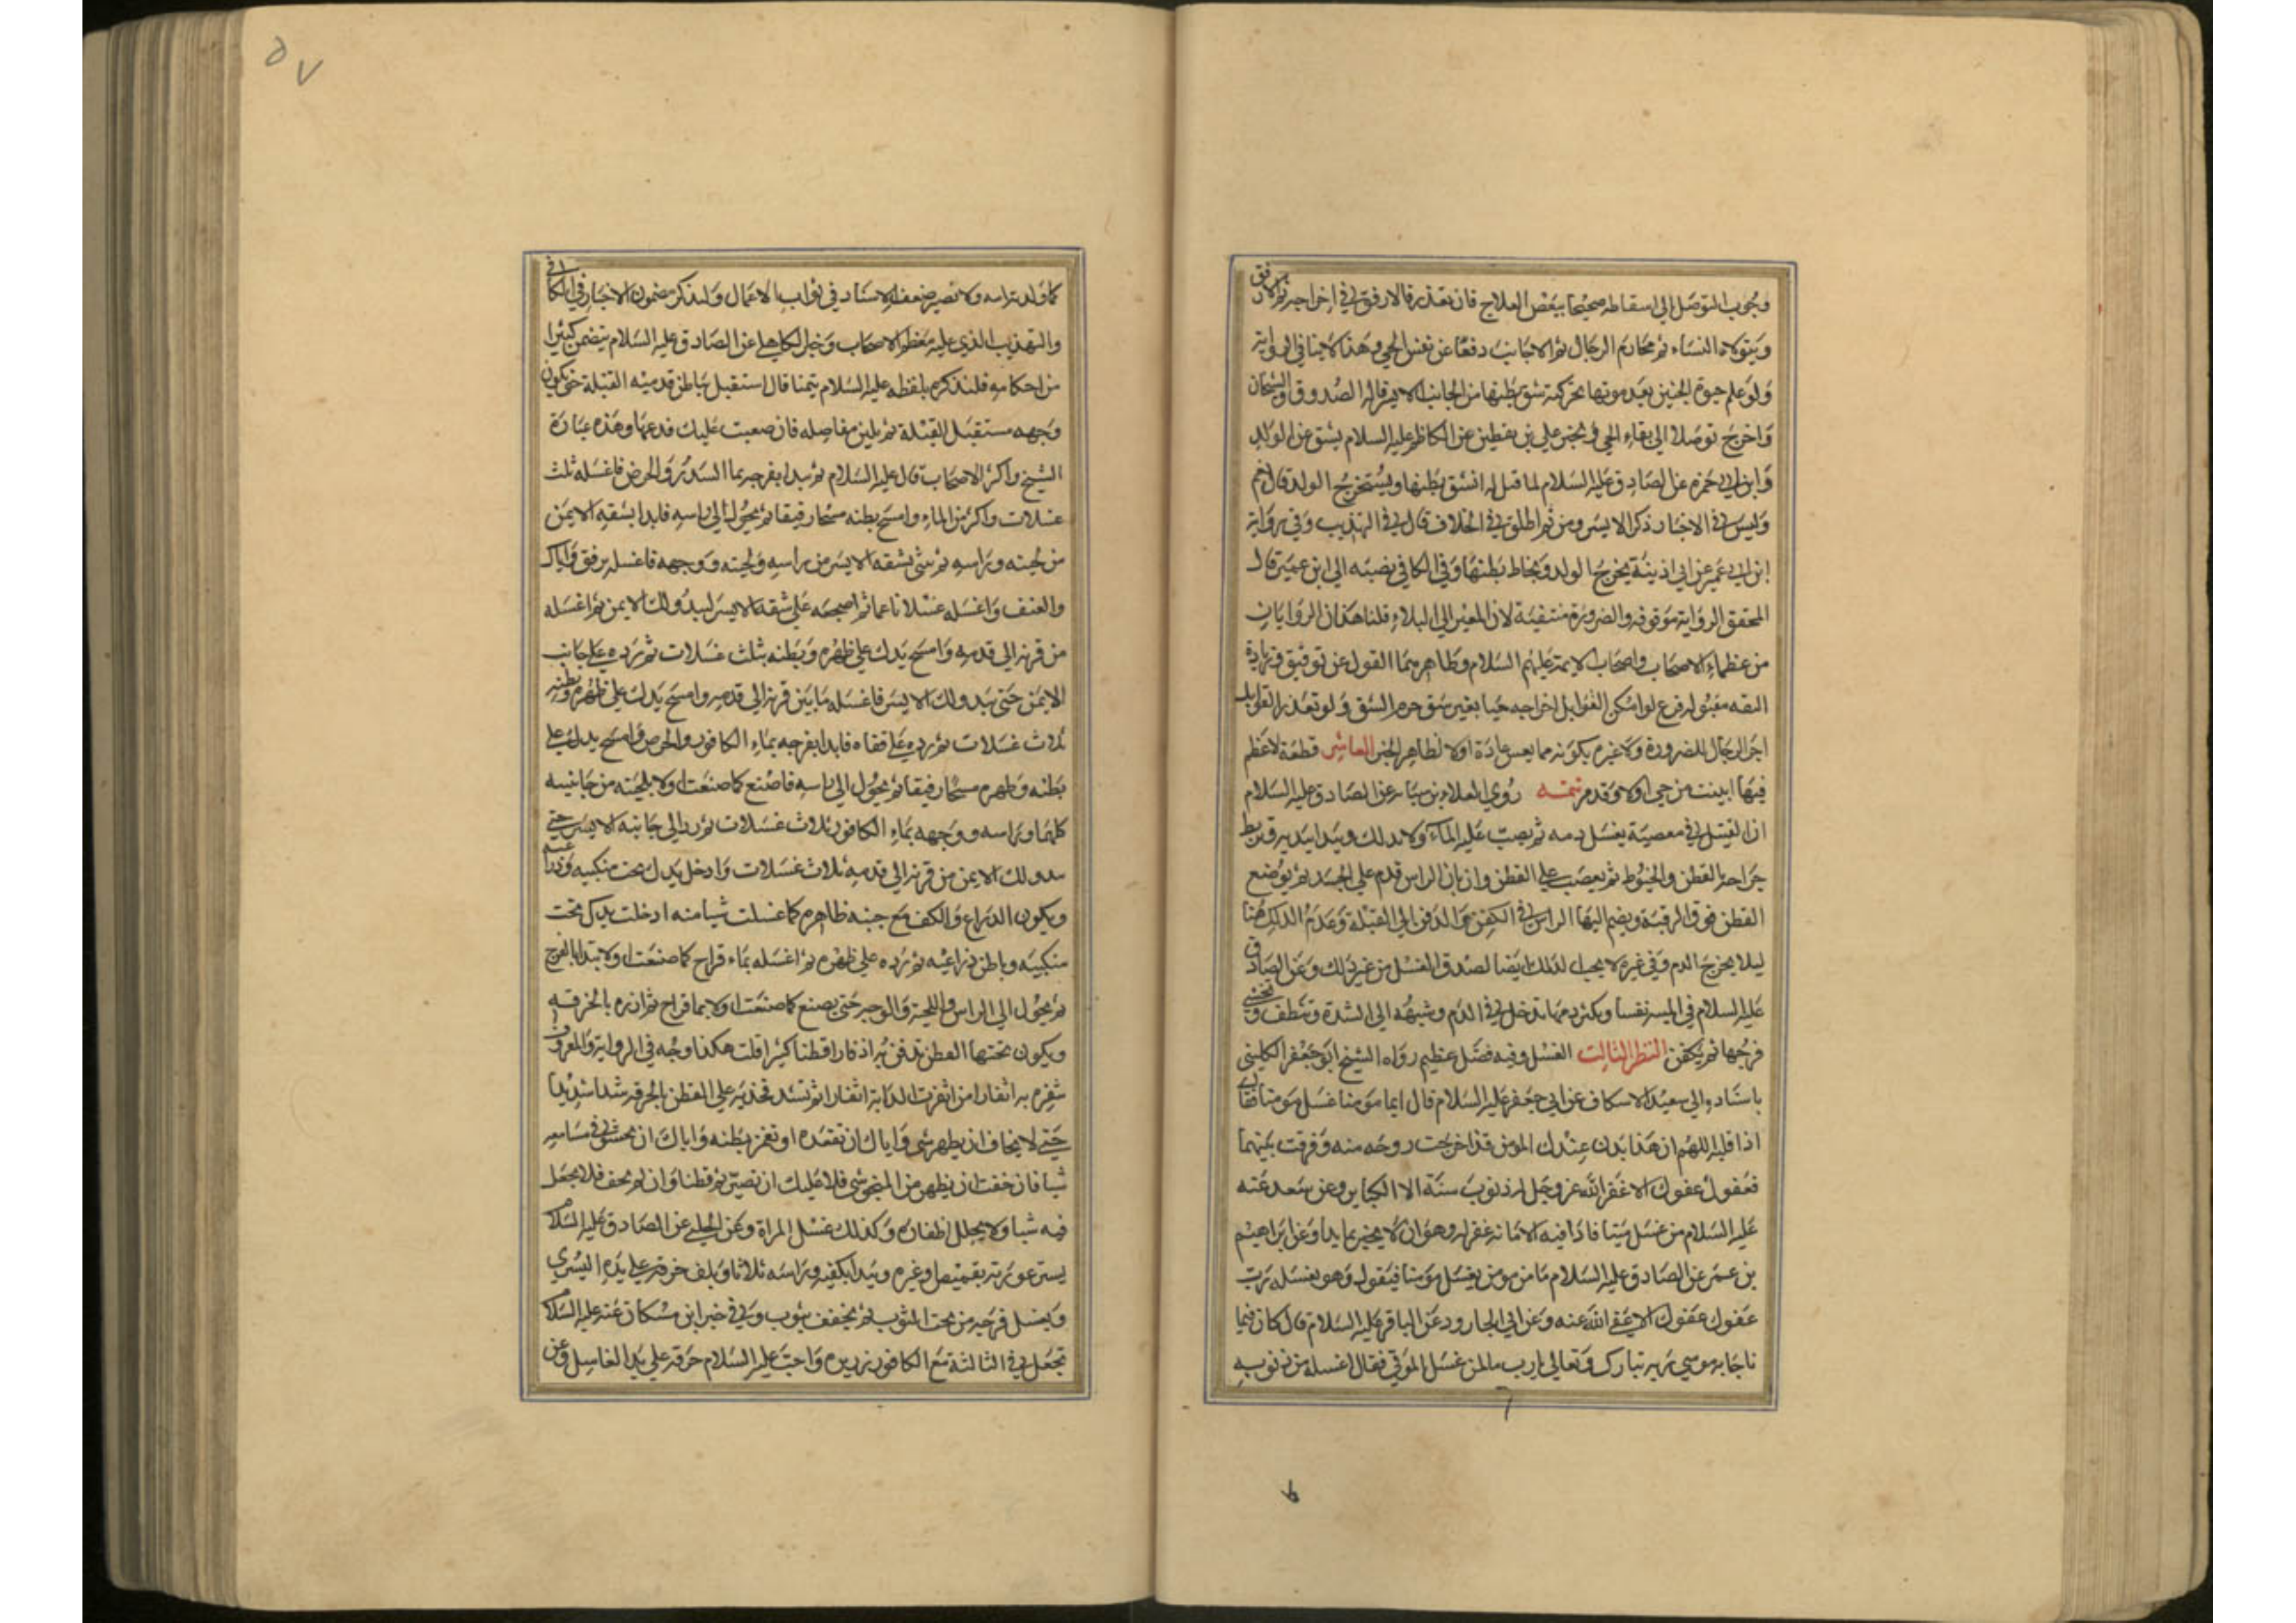 وجوب التوصل الي اسقاطه صحيحا ببعض العلاج فان تعذر فالارفق في اخراجه ثم الارفق
ويتولاه النساء ثم محارم الرجال ثم الاجانب دفعا عن نفس الحي وهذا لا ينافي الرواية
ولو علم حيوة الجنين بعد موتها بحركته شق بطنها من الجانب الايسر قاله الصدوق والشيخان
واخرج توصلا الي بقاء الحي وفي خبر علي بن يقطين عن الكاظم عليه السلام يشق عن الولد
وابن ابي حمزة عن الصادق عليه السلام لما قيل له انشق بطنها ويستخرج الولد قال نعم
وليس في الاخبار ذكر الايسر ومن ثم اطلق في الخلاف قال في التهذيب وفي رواية
ابن ابي عمير عن ابن اذينة يخرج الولد ويخاط بطنها وفي الكافي نصبه الي ابن عمير قال
المحقق الرواية موقوفة والضرورة منتفية لان المصير الي البلاء قلنا هذان الروايان
من عظماء الاصحاب واصحاب الايمة عليهم السلام وظاهرهما القول عن توقيف وزيادة
الثقة مقبولة فرع لو امكن القوابل اخراجه حيا بغير شق حرم الشق ولو تعذر القوابل
اجز الرجال للضرورة ولا غرم بكونه مما يعيش عادة اولا لظاهر الخبر العاشر قطعة لا عظم
فيها ابينت من حي اولا وقد مر تتمه روي العلاء بن سيابة عن الصادق عليه السلام
اذا قتل في معصية يغسل دمه ثم يصب عليه الماء ولا يدلك ويبدا بيديه وتربط
جراحه بالقطن والحنوط ثم يعصب علي القطن وان بان الراس قدم علي الجسد ثم يوضع
القطن فوق الرقبة ويضم اليها الراس في الكفن والدفن الي القبلة وعدم الدلك هنا
ليلا يخرج الدم وفي غيره لا يجب الدلك ايضا لصدق الغسل من غير ذلك وعن الصادق
عليه السلام في الميتة نفسا ويكثر دمها تدخل في الادم وشبهه الي السرة وتنظف وتحشي
فرجها ثم يكفن النظر الثالث الغسل وفيه فضل عظيم رواه الشيخ ابو جعفر الكليني
باسناده الي سعيد الاسكاف عن ابي جعفر عليه السلام قال ايما مومنا غسل مومنا فقال
اذا قلبه اللهم ان هذا بدن عبدك المومن قد اخرجت روحه منه وفرقت بينهما
فعفوك عفوك الا غفر الله عز وجل له ذنوب سنة الا الكباير وعن سعد عنه
عليه السلام من غسل ميتا فادا فيه الامانة غفر له وهو ان لا يخبر بما يرا وعن ابراهيم
بن عمر عن الصادق عليه السلام ما من مومن يغسل مومنا فيقول وهو يغسله رب
عفوك عفوك الا عفي الله عنه وعن ابي الجارود عن الباقر عليه السلام قال كان فيما
ناجا به موسي ربه تبارك وتعالي يارب ما لمن غسل الموتي فقال اغسله من ذنوبه
٥٧
كما ولدته امه ولا يضير ضعف الاسناد في ثواب الاعمال ولنذكر مضمون الاخبار في الكافي
والتهذيب الذي عليه معظم الاصحاب وخبر الكاهلي عن الصادق عليه السلام يتضمن كثيرا
من احكامه فلنذكره بلفظه عليه السلام تيمنا قال استقبل بباطن قدميه القبلة حتي يكون
وجهه مستقبل القبلة ثم يلين مفاصله فان صعبت عليك فدعها وهذه عبارة
الشيخ واكثر الاصحاب قال عليه السلام ثم يبدا بفرجه بما السدر والحرض فاغسله ثلث
غسلات واكثر من الماء وامسح بطنه مسحا رفيقا ثم يحول الي راسه فابدا بشقه الايمن
من لحيته وراسه ثم ثني بشقه الايسر من راسه ولحيته ووجهه فاغسله برفق واياك
والعنف واغسله غسلا ناعما ثم اضجعه علي شقه الايسر ليبدو لك الايمن ثم اغسله
من قرنه الي قدمه وامسح يدك علي ظهره وبطنه بثلث غسلات ثم رده علي جانب
الايمن حتي يبدو لك الايسر فاغسله ما بين قرنه الي قدمه وامسح يدك علي ظهره وبطنه
ثلاث غسلات ثم رده علي قفاه فابدا بفرجه بماء الكافور والحرض وامسح يدك علي
بطنه وظهره مسحا رفيقا ثم يحول الي راسه فاصنع كما صنعت اولا بلحيته من جانبيه
كلهما وراسه ووجهه بماء الكافور ثلاث غسلات ثم رد الي جانبه الايسر حتي
يبدو لك الايمن من قرنه الي قدمه ثلاث غسلات وادخل يدك تحت منكبيه وذراعيه
ويكون الذراع والكف مع جنبه ظاهره كما غسلت شيا منه ادخلت يدك تحت
منكبيه وباطن ذراعيه ثم رده علي ظهره ثم اغسله بماء قراح كما صنعت اولا تبدا بالفرج
ثم يحول الي الراس واللحية والوجه حتي يصنع كما صنعت اولا بما قراح ثم ازره بالخرقه
ويكون تحتها القطن تذفره به اذفارا قطنا كثيرا قلت هكذا وجد في الرواية والمعروف
تثفره به اثفارا من اثفرت الدابة اثفارا ثم تشد فخذيه علي القطن بالخرقه شدا شديدا
حتي لا يخاف ان يظهر شي واياك ان تقعده او تغمز بطنه واياك ان تحشو في مسامعه
شيا فان خفت ان يظهر من المنخر شي فلا عليك ان تصير ثم قطنا وان لم تخف فلا تجعل
فيه شيا ولا يخلل اظفاره وكذلك غسل المراة وعن الحلبي عن الصادق عليه السلام
يستر عورته بقميص او غيره ويبدا بكفيه وراسه ثلاثا ويلف خرقه علي يده اليسري
ويغسل فرجه من تحت الثوب ثم يجفف بثوب وفي خبر ابن مسكان عنه عليه السلام
تجعل في الثالثة مع الكافور ذريره واحب عليه السلام خرقه علي يد الغاسل وعن